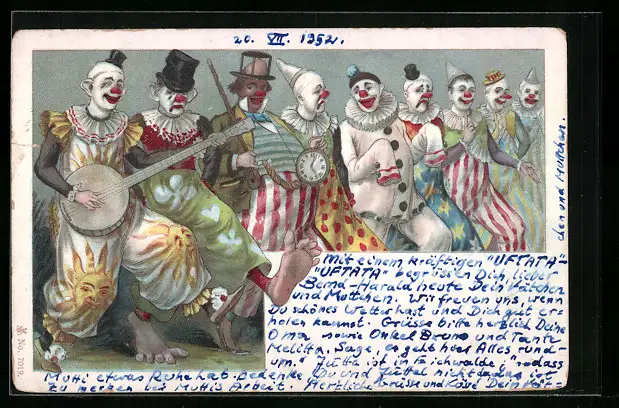 20. VII. 1952.
Mit einem kräftigen "UFTATA-
"UFTATA" begrüssen Dich, lieber
Bernd-Harald heute Dein Vätchen
und Muttchen. Wir freuen uns, wenn
Du schönes Wetter hast und Dich gut er-
holen kannst. Grüsse bitte herzlich Deine
Oma sowie Onkel Bruno und Tante
Melitta. Sage, es geht hier alles rund-
um." Jutta ist in Eichwalde, sodass
Mutti etwas Ruhe hat. Bedenke, Du und Jutta nicht da, das ist
zu merken bei Muttis Arbeit. Herzliche Grüsse und Dein Vät-
chen und Muttchen.
No. 7019.